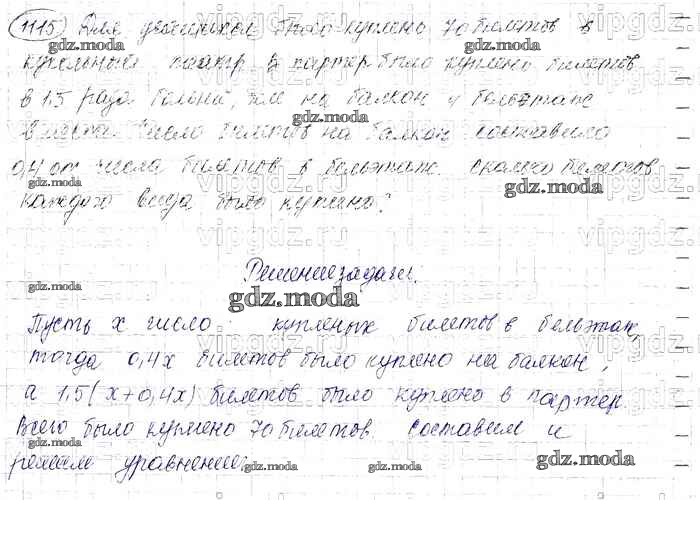 1115) Для учеников было куплено 70 билетов в
кукольный театр. В партер было куплено билетов
в 1,5 раза больше, чем на балкон и бельэтаж
вместе. Число билетов на балкон составило
0,4 от числа билетов в бельэтаж. Сколько билетов
каждого вида было куплено?
Решение задачи.
Пусть x число купленых билетов в бельэтаж,
тогда 0,4x билетов было куплено на балкон,
а 1,5(x+0,4x) билетов было куплено в партер.
Всего было куплено 70 билетов. Составим и
решим уравнение: